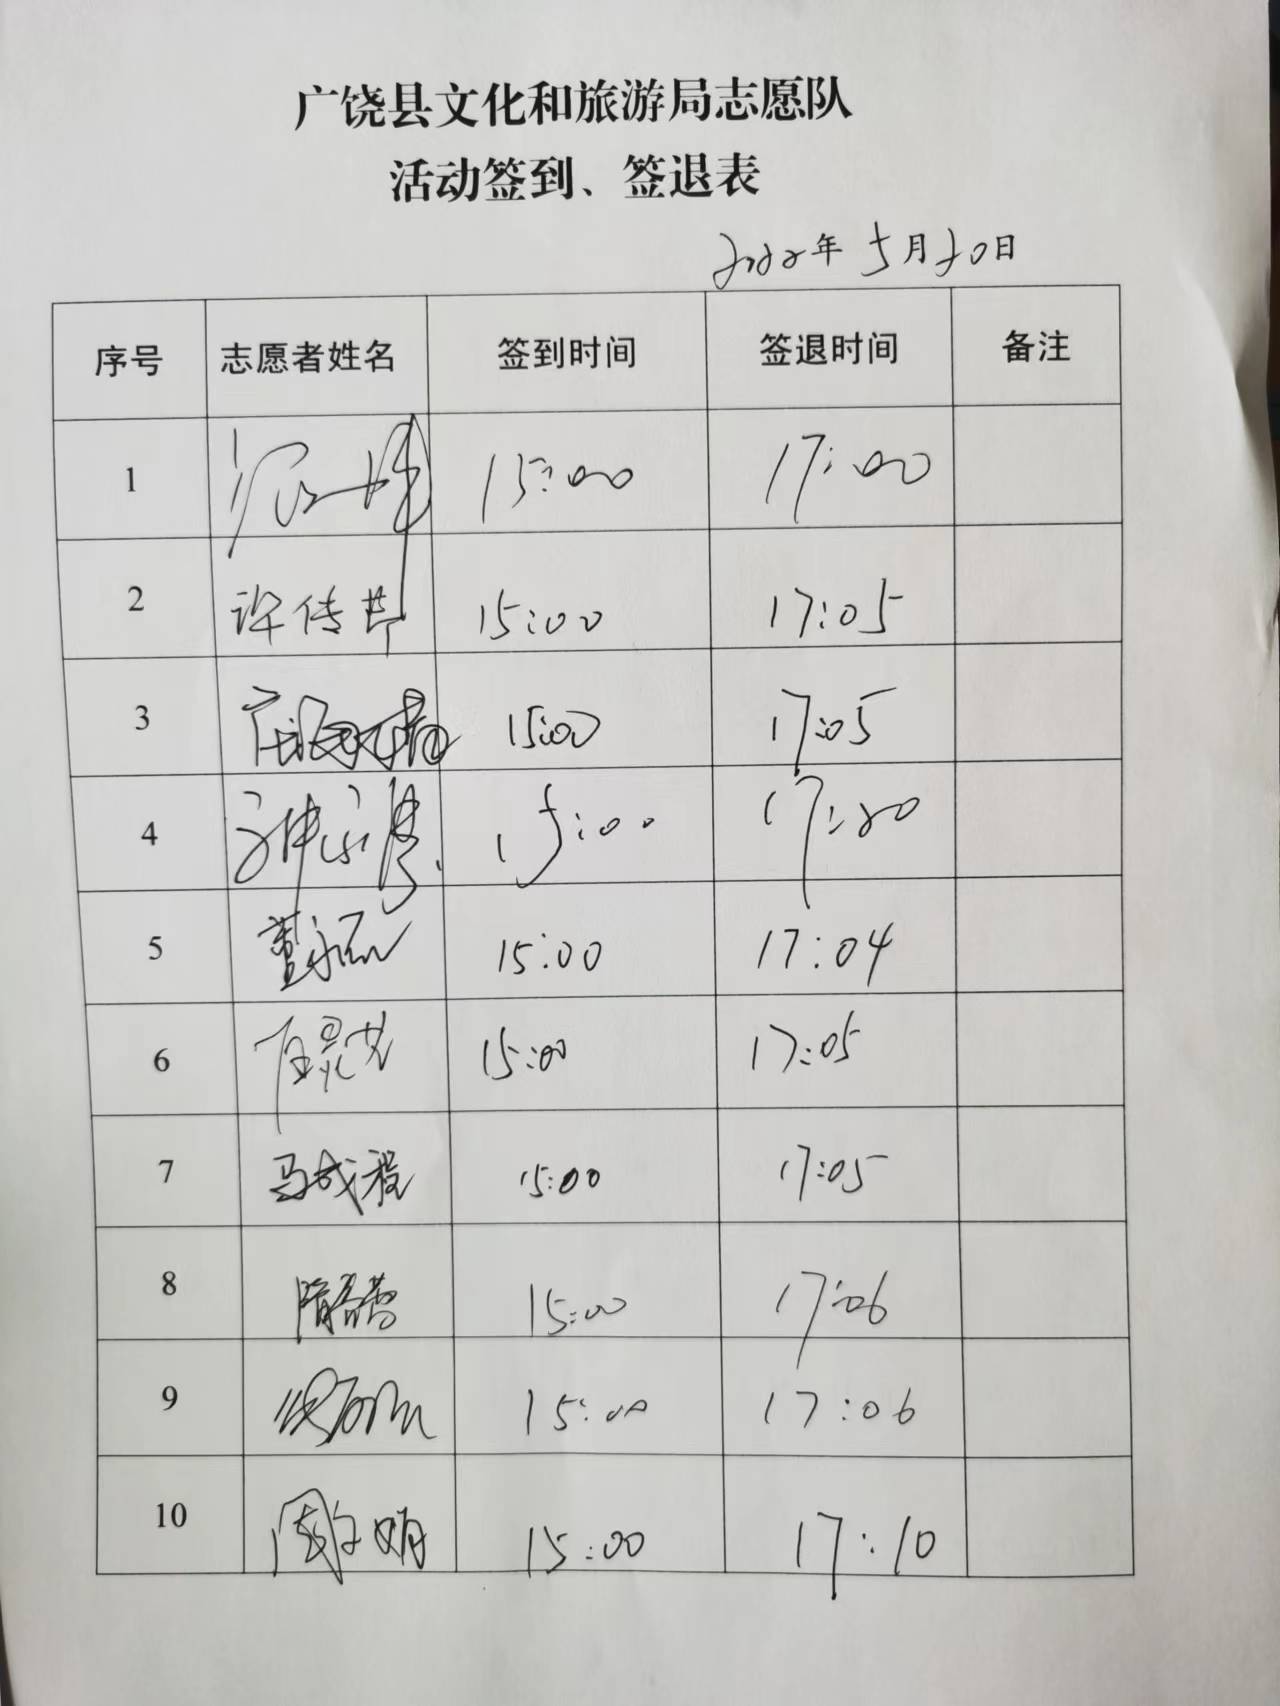 广饶县文化和旅游局志愿队
活动签到、签退表
2022年5月20日
序号 志愿者姓名 签到时间 签退时间 备注
1 15:00 17:00
2 许传芹 15:00 17:05
3 15:00 17:05
4 15:00 17:20
5 董永 15:00 17:04
6 15:00 17:05
7 马成程 15:00 17:05
8 隋 15:00 17:06
9 15:00 17:06
10 周 娟 15:00 17:10